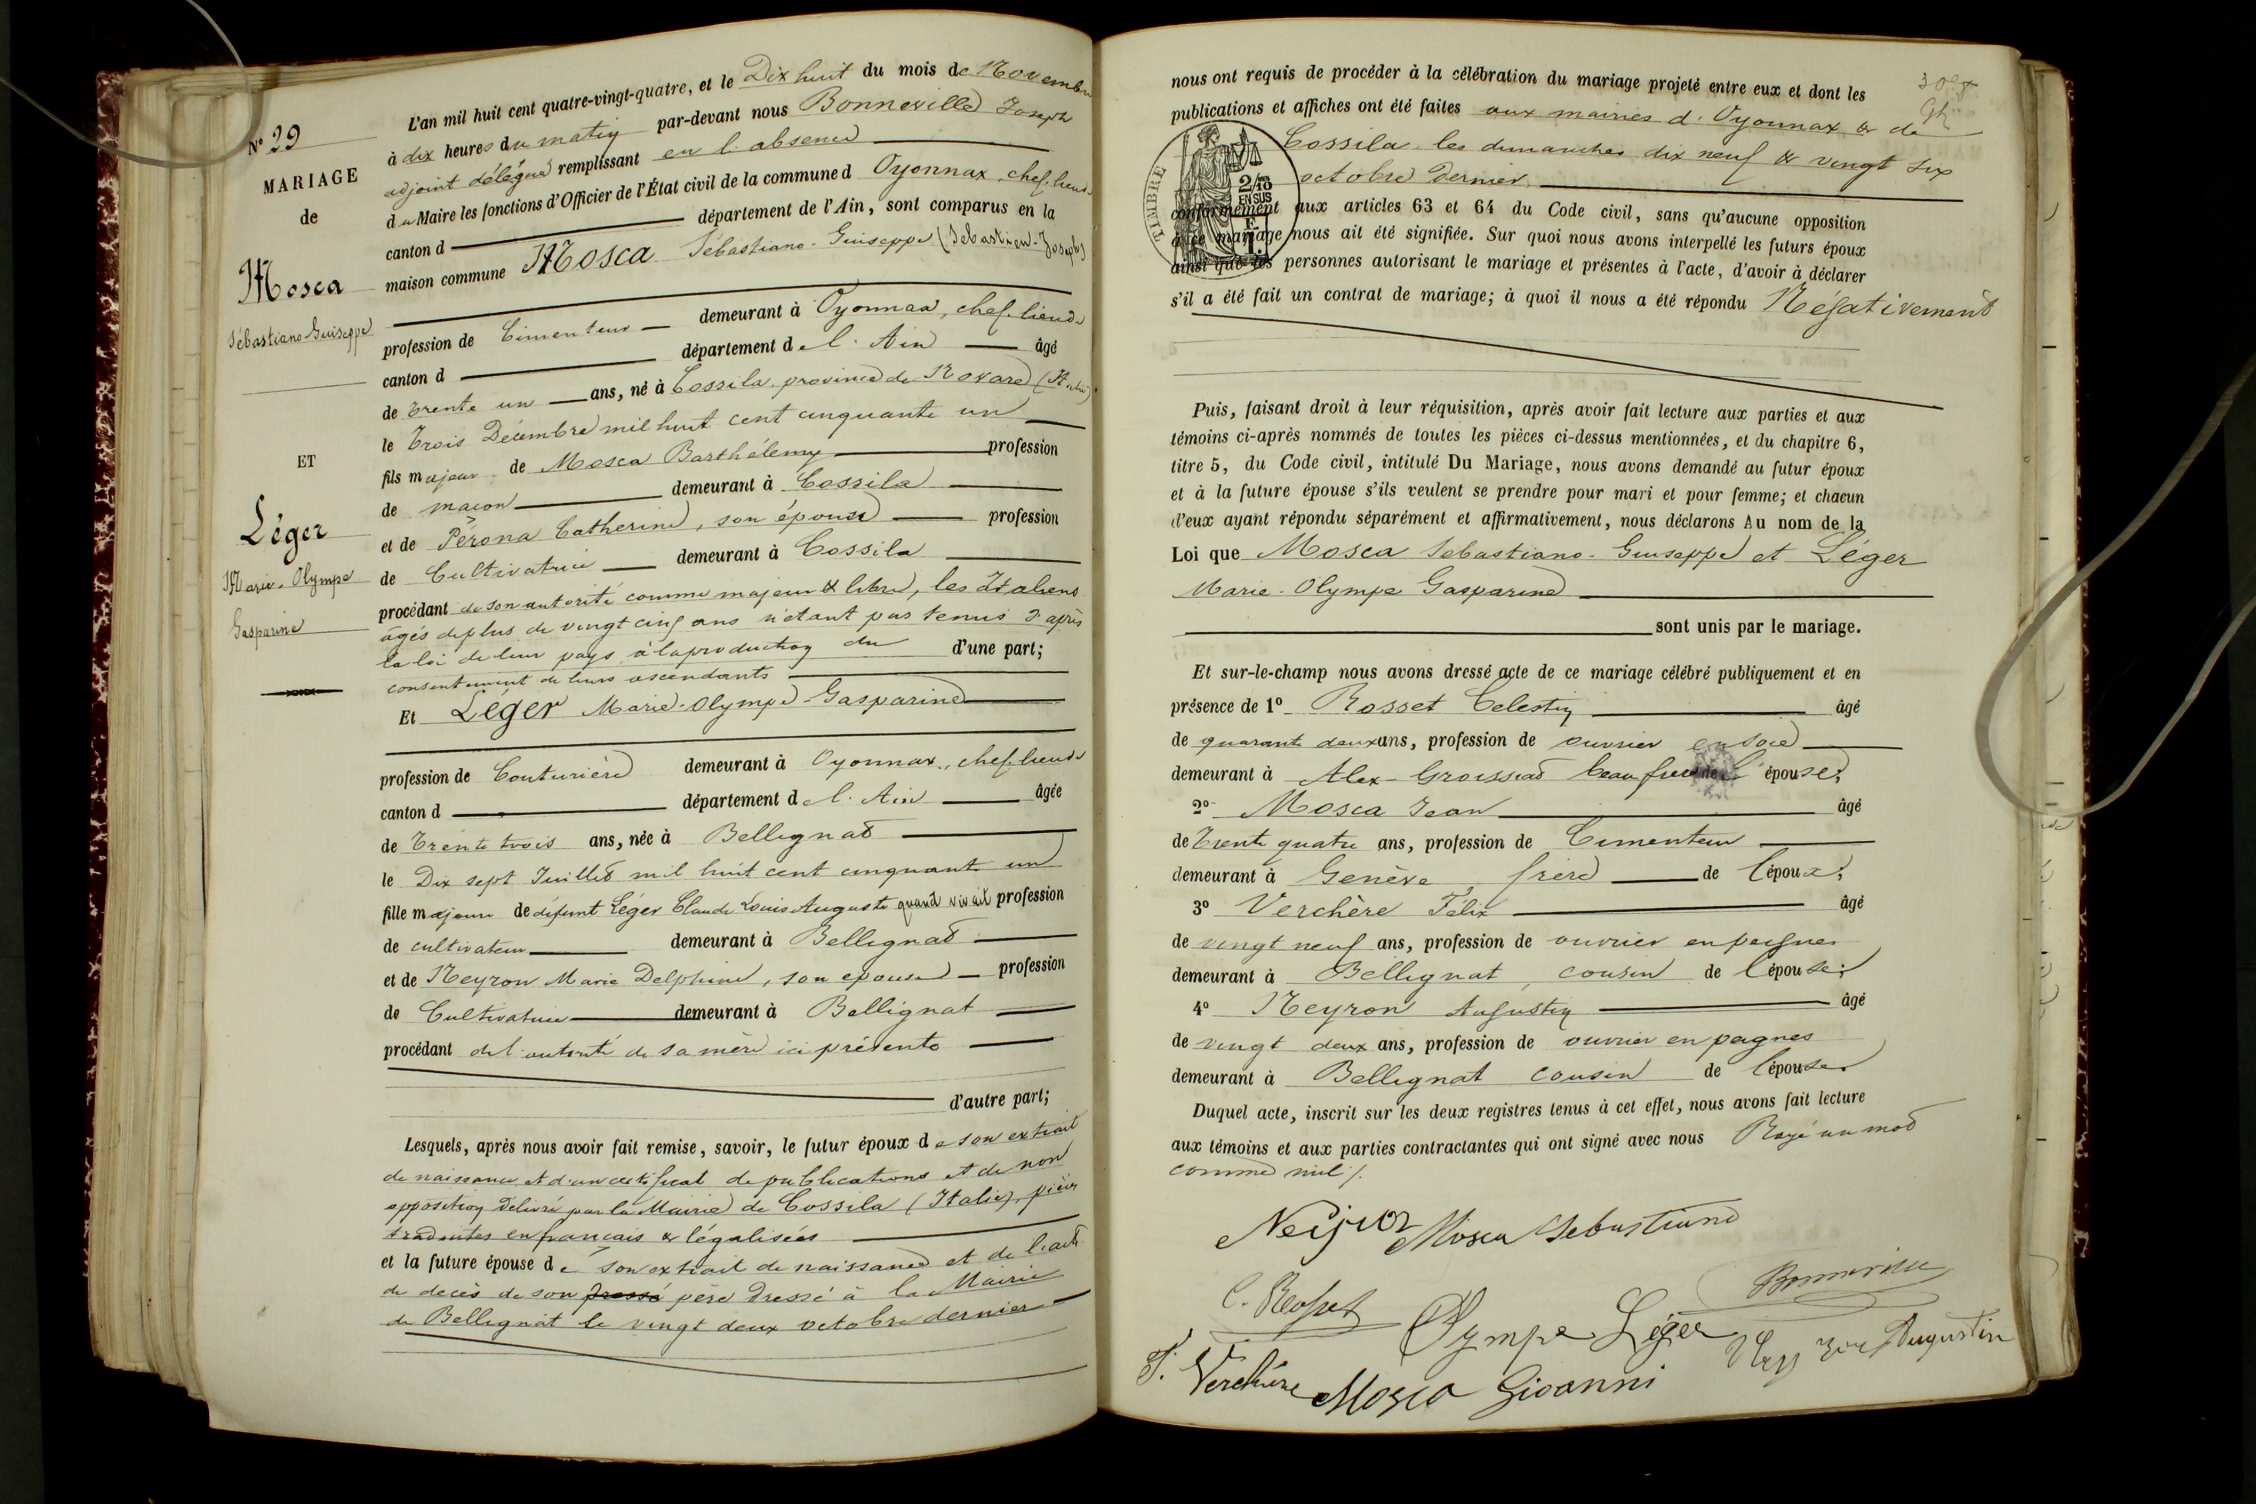 L'an mil huit cent quatre-vingt-quatre, et le Dix huit du mois de Novembre
à dix heures du matin par-devant nous Bonneville Joseph
adjoint délégué remplissant en l'absence
du Maire les fonctions d'Officier de l'État civil de la commune d Oyonnax, chef-lieu de
canton d département de l'Ain, sont comparus en la
maison commune Mosca Sébastiano-Guiseppe (Sébastien-Joseph)
profession de Cimenteur demeurant à Oyonnax, chef-lieu de
canton d département de l'Ain âgé
de trente un ans, né à Cossila province de Novare (Italie)
le Trois Décembre mil huit cent cinquante un
fils majeur de Mosca Barthélemy profession
de maçon demeurant à Cossila
et de Pérona Catherine, son épouse profession
de Cultivatrice demeurant à Cossila
procédant de son autorité comme majeur & libre, les Italiens
âgés de plus de vingt cinq ans n'étant pas tenus d'après
la loi de leur pays à la production du d'une part;
consentement de leurs ascendants
Et Léger Marie-Olympe-Gasparine
profession de Couturière demeurant à Oyonnax, chef-lieu de
canton d département de l'Ain âgée
de Trente trois ans, née à Bellignat
le Dix sept Juillet mil huit cent cinquante un
fille majeure de défunt Léger Claude Louis Auguste quand vivait profession
de cultivateur demeurant à Bellignat
et de Neyron Marie Delphine, son épouse profession
de Cultivatrice demeurant à Bellignat
procédant de l'autorité de sa mère ici présente
d'autre part;
Lesquels, après nous avoir fait remise, savoir, le futur époux de son extrait
de naissance et d'un certificat de publications et de non
opposition délivré par la Mairie de Cossila (Italie), pièces
traduites en français & légalisées
et la future épouse de son extrait de naissance et de l'acte
de décès de son pressé père dressé à la Mairie
de Bellignat le vingt deux octobre dernier
N° 29
MARIAGE
de
Mosca
Sébastiano Guiseppe
ET
Léger
Marie-Olympe
Gasparine
nous ont requis de procéder à la célébration du mariage projeté entre eux et dont les
publications et affiches ont été faites aux mairies d'Oyonnax & de
Cossila les dimanches dix neuf & vingt six
octobre dernier
conformément aux articles 63 et 64 du Code civil, sans qu'aucune opposition
à ce mariage nous ait été signifiée. Sur quoi nous avons interpellé les futurs époux
ainsi que les personnes autorisant le mariage et présentes à l'acte, d'avoir à déclarer
s'il a été fait un contrat de mariage; à quoi il nous a été répondu Négativement
TIMBRE
2/10
EN SUS
Puis, faisant droit à leur réquisition, après avoir fait lecture aux parties et aux
témoins ci-après nommés de toutes les pièces ci-dessus mentionnées, et du chapitre 6,
titre 5, du Code civil, intitulé Du Mariage, nous avons demandé au futur époux
et à la future épouse s'ils veulent se prendre pour mari et pour femme; et chacun
d'eux ayant répondu séparément et affirmativement, nous déclarons Au nom de la
Loi que Mosca Sebastiano-Guiseppe et Léger
Marie-Olympe Gasparine
sont unis par le mariage.
Et sur-le-champ nous avons dressé acte de ce mariage célébré publiquement et en
présence de 1° Rosset Celestin âgé
de quarante deux ans, profession de ouvrier en soie
demeurant à Alex-Groissiat beau frère de l'épouse;
2° Mosca Jean âgé
de Trente quatre ans, profession de Cimenteur
demeurant à Genève, frère de l'époux;
3° Verchère Félix âgé
de vingt neuf ans, profession de ouvrier en peignes
demeurant à Bellignat, cousin de l'épouse;
4° Neyron Augustin âgé
de vingt deux ans, profession de ouvrier en peignes
demeurant à Bellignat cousin de l'épouse
Duquel acte, inscrit sur les deux registres tenus à cet effet, nous avons fait lecture
aux témoins et aux parties contractantes qui ont signé avec nous Rayé un mot
comme nul /.
Neyron Mosca Sebastiano
C. Rosset Olympe Léger Bonneville
F. Verchère Mosca Giovanni Neyron Augustin